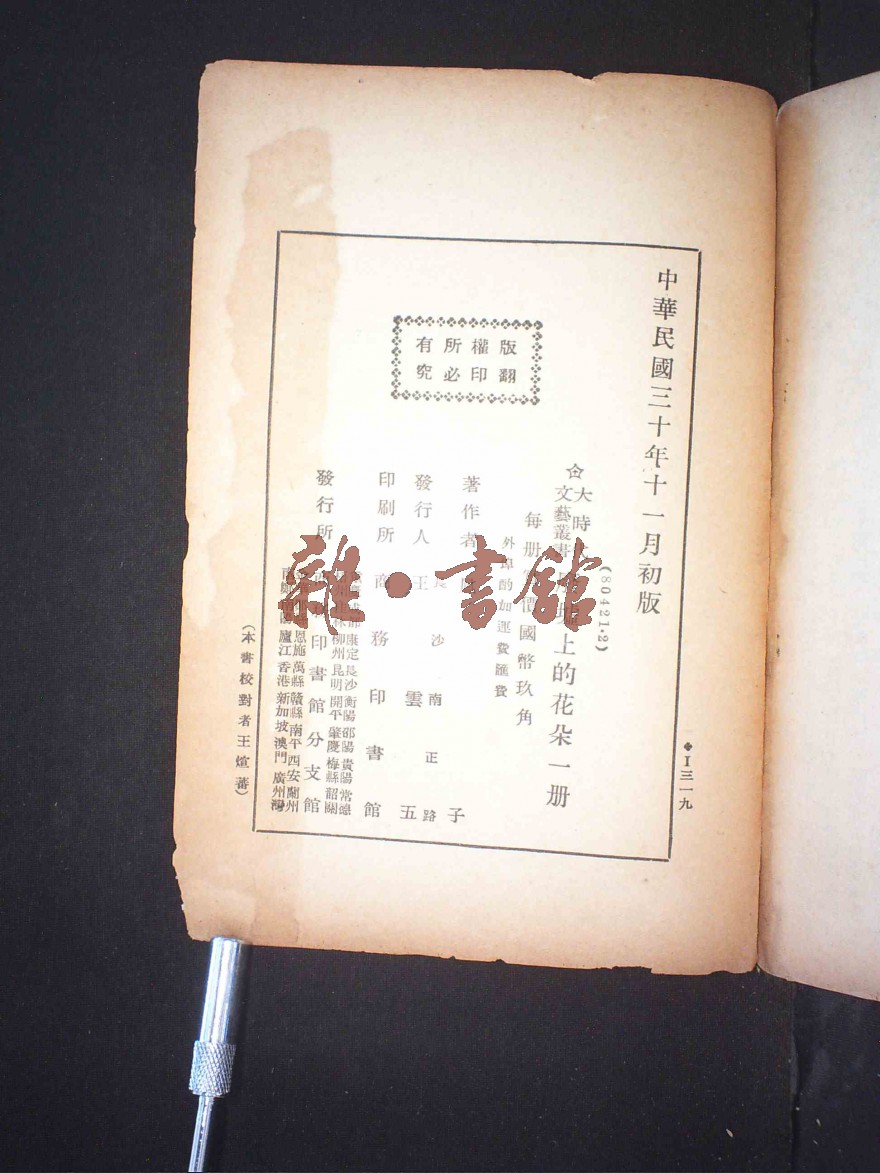 中華民國三十年十一月初版
I三一九
(80421·2)
大時
文藝叢書
上的花朵一册
每册 價國幣玖角
外埠酌加運費匯費
著作者
子
長沙南正路
發行人 王雲五
印刷所 商務印書館
發行所
印書館分支館
成都康定長沙衡陽邵陽貴陽常德
柳州昆明開平肇慶梅縣韶關
恩施萬縣贛縣南平西安蘭州
廬江香港新加坡澳門廣州灣
版權所有
翻印必究
(本書校對者王煊蕃)
雜·書館